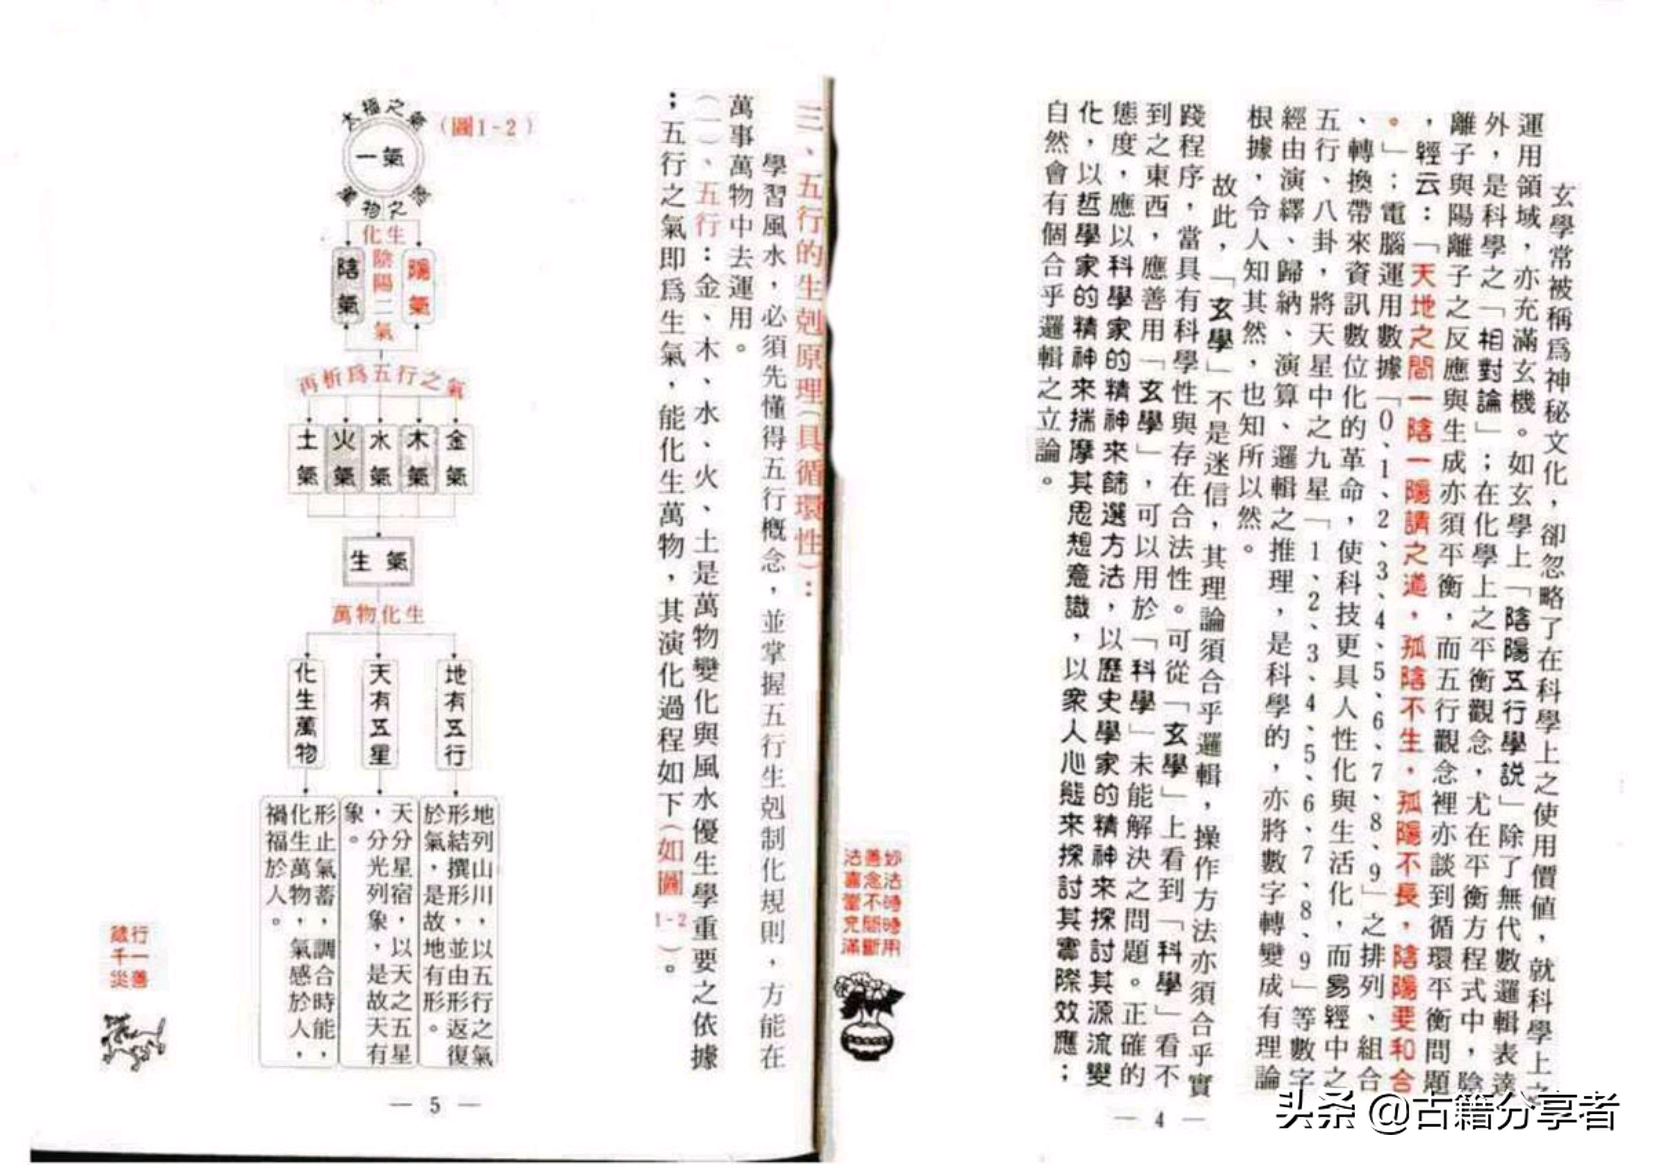 玄學常被稱爲神秘文化，卻忽略了在科學上之使用價値，就科學上之
運用領域，亦充滿玄機。如玄學上「陰陽五行學說」除了無代數邏輯表達
外，是科學之「相對論」；在化學上之平衡觀念，尤在平衡方程式中，陰
離子與陽離子之反應與生成亦須平衡，而五行觀念裡亦談到循環平衡問題
，經云：「天地之間一陰一陽謂之道，孤陰不生，孤陽不長，陰陽要和合
。」；電腦運用數據「0、1、2、3、4、5、6、7、8、9」之排列、組合
、轉換帶來資訊數位化的革命，使科技更具人性化與生活化，而易經中之
五行、八卦，將天星中之九星「1、2、3、4、5、6、7、8、9」等數字
經由演繹、歸納、演算、邏輯之推理，是科學的，亦將數字轉變成有理論
根據，令人知其然，也知所以然。
故此，「玄學」不是迷信，其理論須合乎邏輯，操作方法亦須合乎實
踐程序，當具有科學性與存在合法性。可從「玄學」上看到「科學」看不
到之東西，應善用「玄學」，可以用於「科學」未能解決之問題。正確的
態度，應以科學家的精神來篩選方法，以歷史學家的精神來探討其源流變
化，以哲學家的精神來揣摩其思想意識，以衆人心態來探討其實際效應；
自然會有個合乎邏輯之立論。
— 4 —
妙法時時用
善念不間斷
法喜當充滿
三、五行的生剋原理（具循環性）：
學習風水，必須先懂得五行概念，並掌握五行生剋制化規則，方能在
萬事萬物中去運用。
（一）、五行：金、木、水、火、土是萬物變化與風水優生學重要之依據
；五行之氣即爲生氣，能化生萬物，其演化過程如下（如圖1-2）。
（圖1-2）
太極之氣
一氣
萬物之
化生
陰陽二氣
陽氣
陰氣
再析爲五行之氣
金氣
木氣
水氣
火氣
土氣
生氣
萬物化生
地有五行
天有五星
化生萬物
地列山川，以五行之氣
形結撰形，並由形返復
於氣，是故地有形。
天分星宿，以天之五星
，分光列象，是故天有
象。
形止氣蓄，調合時能，
化生萬物，氣感於人，
禍福於人。
行一善
藏千災
— 5 —
头条 @古籍分享者